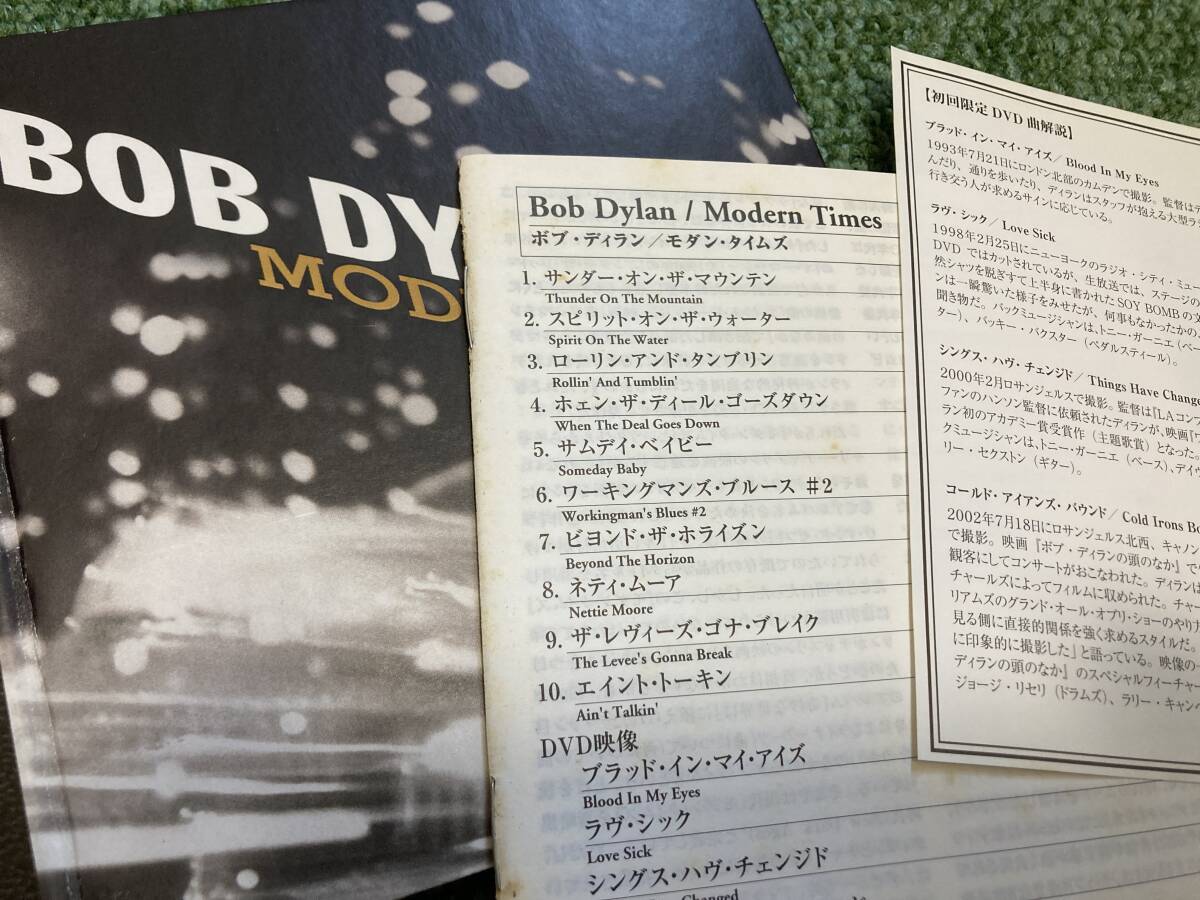 BOB DY
MOD
Bob Dylan / Modern Times
ボブ・ディラン／モダン・タイムズ
1. サンダー・オン・ザ・マウンテン
Thunder On The Mountain
2. スピリット・オン・ザ・ウォーター
Spirit On The Water
3. ローリン・アンド・タンブリン
Rollin' And Tumblin'
4. ホェン・ザ・ディール・ゴーズダウン
When The Deal Goes Down
5. サムデイ・ベイビー
Someday Baby
6. ワーキングマンズ・ブルース ♯2
Workingman's Blues #2
7. ビヨンド・ザ・ホライズン
Beyond The Horizon
8. ネティ・ムーア
Nettie Moore
9. ザ・レヴィーズ・ゴナ・ブレイク
The Levee's Gonna Break
10. エイント・トーキン
Ain't Talkin'
DVD映像
ブラッド・イン・マイ・アイズ
Blood In My Eyes
ラヴ・シック
Love Sick
シングス・ハヴ・チェンジド
Changed
【初回限定 DVD 曲解説】
ブラッド・イン・マイ・アイズ／ Blood In My Eyes
1993年7月21日にロンドン北部のカムデンで撮影。監督はデ
んだり、通りを歩いたり、ディランはスタッフが抱える大型ラ
行き交う人が求めるサインに応じている。
ラヴ・シック／ Love Sick
1998年2月25日にニューヨークのラジオ・シティ・ミュー
DVD ではカットされているが、生放送では、ステージの
然シャツを脱ぎすて上半身に書かれた SOY BOMB の文
ンは一瞬驚いた様子をみせたが、何事もなかったかの
聞き物だ。バックミュージシャンは、トニー・ガーニエ（ベー
ター）、バッキー・バクスター（ペダルスティール）。
シングス・ハヴ・チェンジド／ Things Have Change
2000年2月ロサンジェルスで撮影。監督は『LAコンフ
ファンのハンソン監督に依頼されたディランが、映画『
ラン初のアカデミー賞受賞作（主題歌賞）となった。
クミュージシャンは、トニー・ガーニエ（ベース）、デイヴ
リー・セクストン（ギター）。
コールド・アイアンズ・バウンド／ Cold Irons Bo
2002年7月18日にロサンジェルス北西、キャノン
で撮影。映画『ボブ・ディランの頭のなか』で
観客にしてコンサートがおこなわれた。ディランは
チャールズによってフィルムに収められた。チャー
リアムズのグランド・オール・オプリ・ショーのやりナ
見る側に直接的関係を強く求めるスタイルだ。
に印象的に撮影した」と語っている。映像の
ディランの頭のなか』のスペシャルフィーチャー
ジョージ・リセリ（ドラムズ）、ラリー・キャンベ